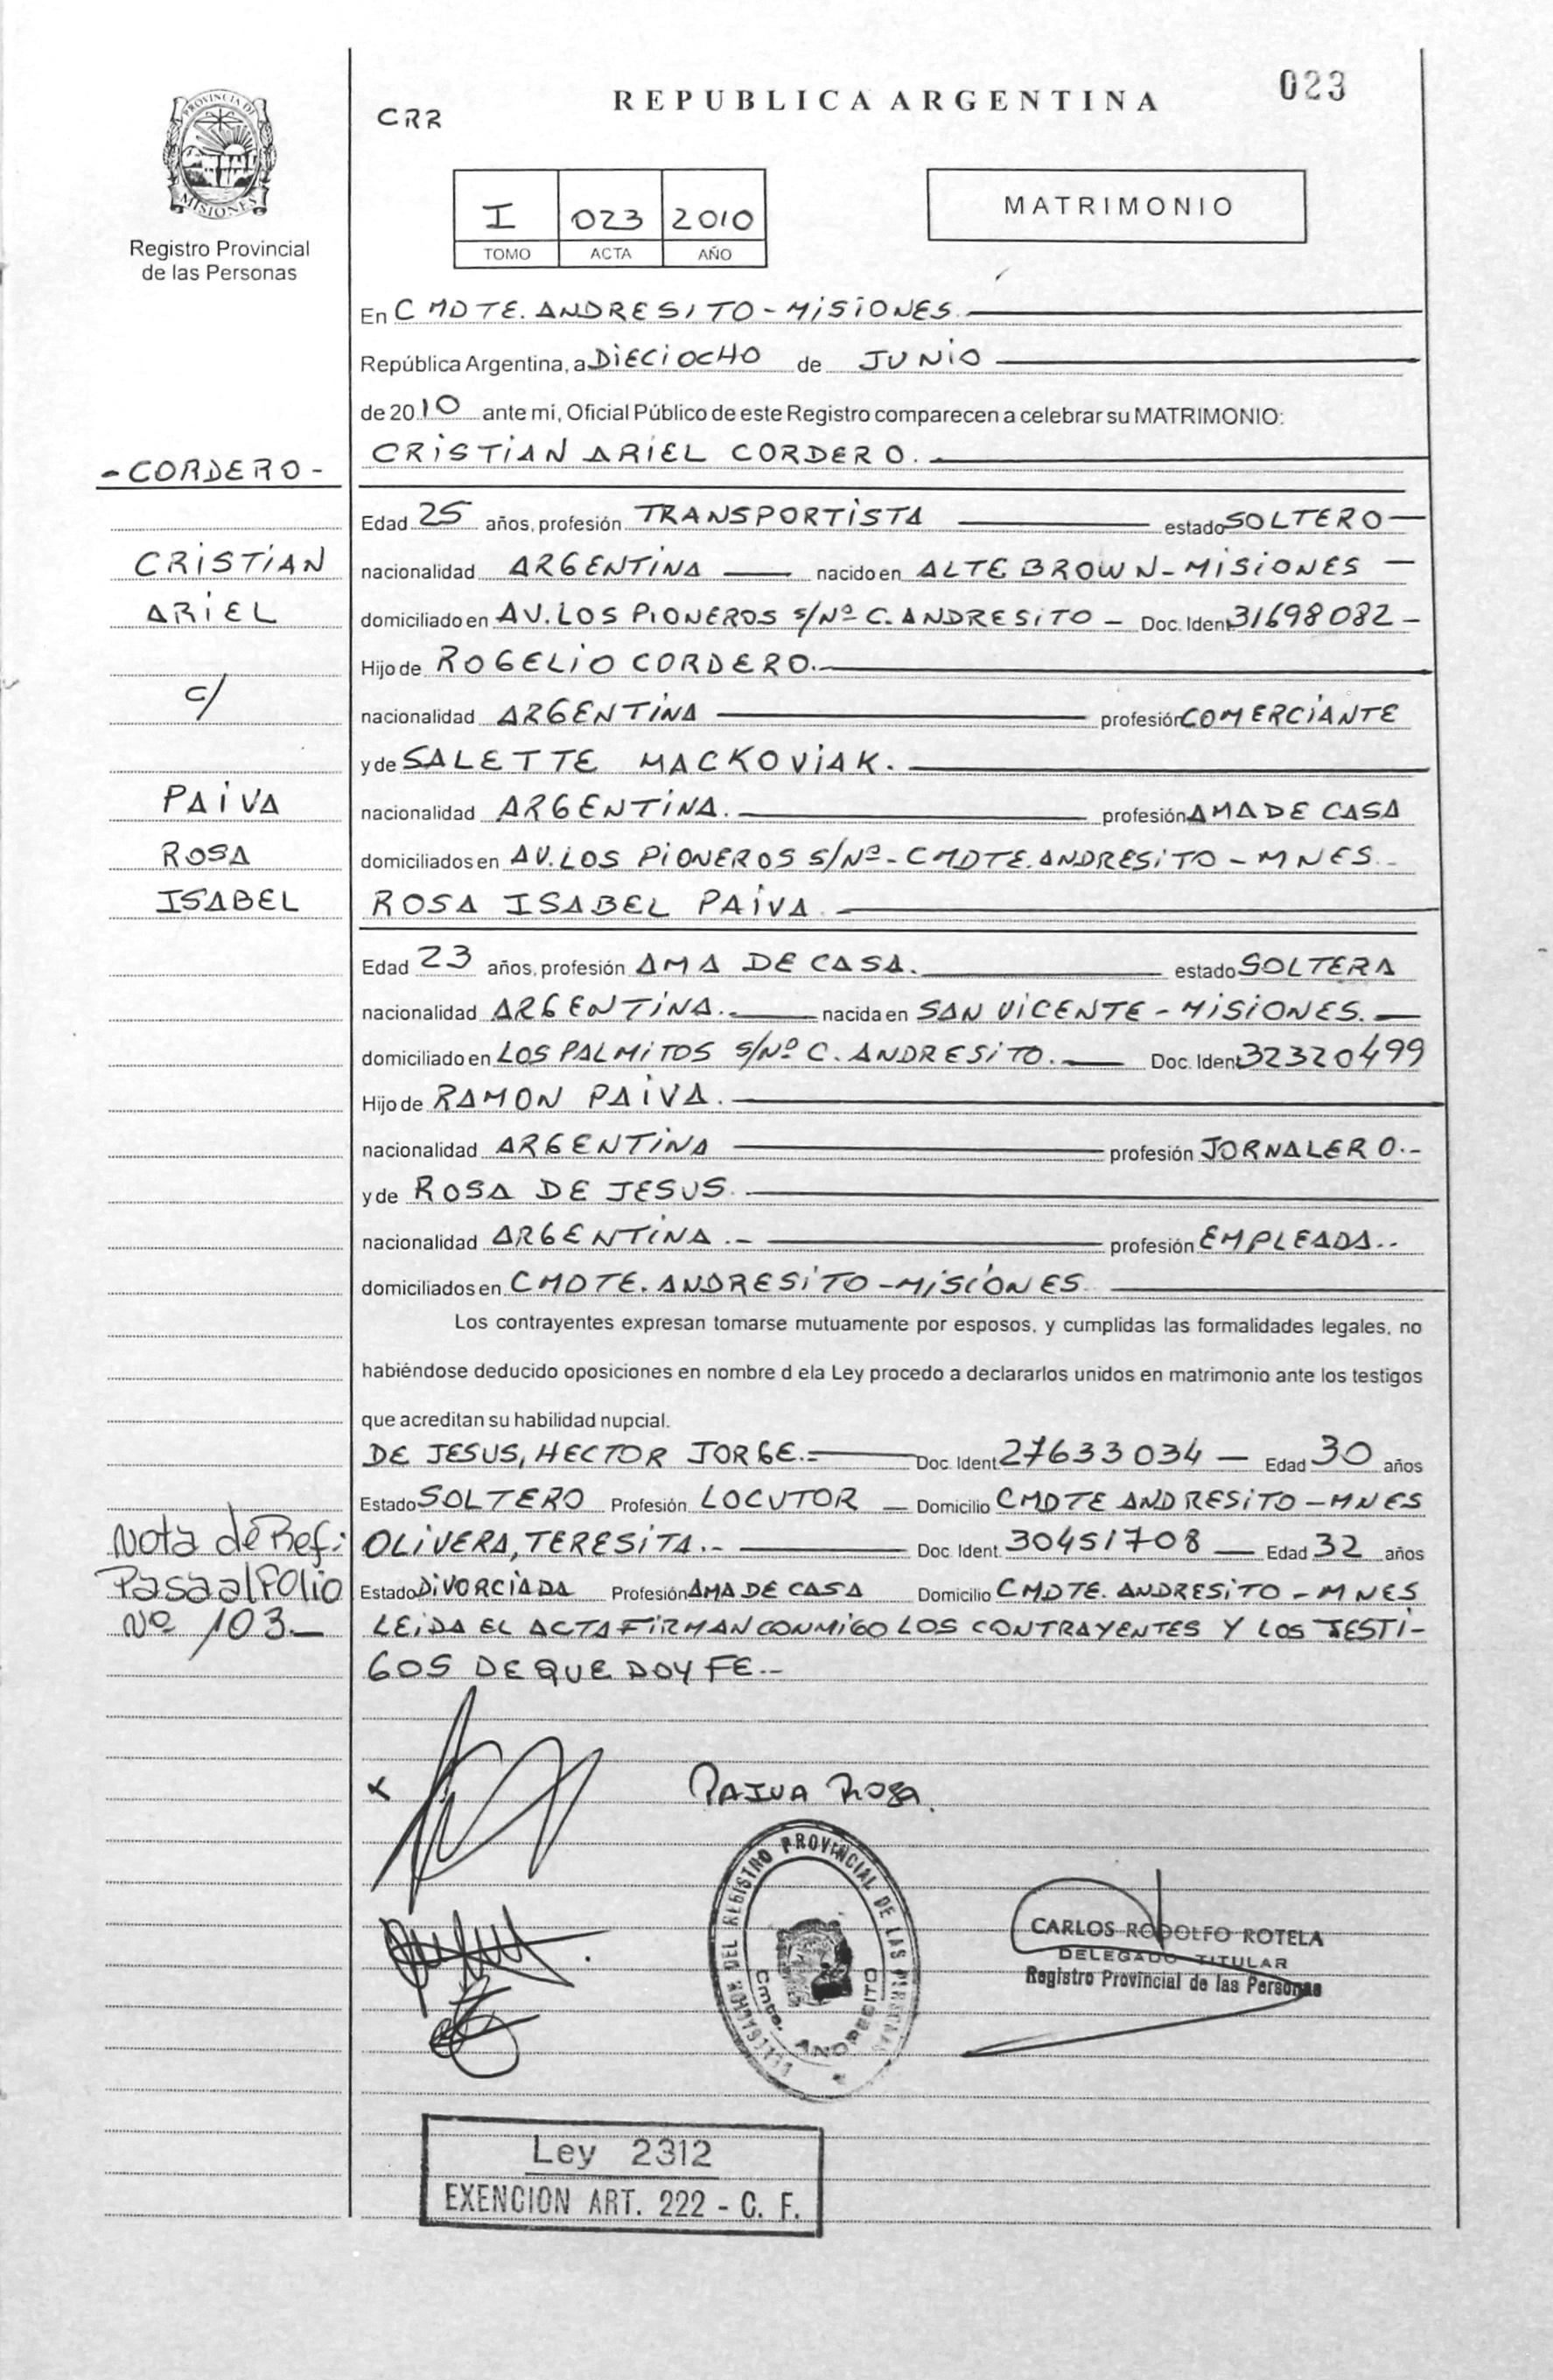 023
REPUBLICA ARGENTINA
CRR
PROVINCIA DE
MISIONES
Registro Provincial
de las Personas
I 023 2010
TOMO ACTA AÑO
MATRIMONIO
En CMDTE. ANDRESITO - MISIONES.
República Argentina, a DIECIOCHO de JUNIO
de 2010 ante mí, Oficial Público de este Registro comparecen a celebrar su MATRIMONIO:
CRISTIAN ARIEL CORDERO.
- CORDERO -
Edad 25 años, profesión TRANSPORTISTA estado SOLTERO
CRISTIAN
nacionalidad ARGENTINA nacido en ALTE BROWN - MISIONES
ARIEL
domiciliado en AV. LOS PIONEROS S/Nº C. ANDRESITO - Doc. Ident 31698082 -
Hijo de ROGELIO CORDERO.
c/
nacionalidad ARGENTINA profesión COMERCIANTE
y de SALETTE MACKOVIAK.
PAIVA
nacionalidad ARGENTINA. profesión AMA DE CASA
ROSA
domiciliados en AV. LOS PIONEROS S/Nº - CMDTE. ANDRESITO - MNES.
ISABEL
ROSA ISABEL PAIVA.
Edad 23 años, profesión AMA DE CASA. estado SOLTERA
nacionalidad ARGENTINA. nacida en SAN VICENTE - MISIONES.
domiciliado en LOS PALMITOS S/Nº C. ANDRESITO. Doc. Ident 32320499
Hijo de RAMON PAIVA.
nacionalidad ARGENTINA profesión JORNALERO.-
y de ROSA DE JESUS.
nacionalidad ARGENTINA.- profesión EMPLEADA..
domiciliados en CMDTE. ANDRESITO - MISIONES.
Los contrayentes expresan tomarse mutuamente por esposos, y cumplidas las formalidades legales, no
habiéndose deducido oposiciones en nombre d ela Ley procedo a declararlos unidos en matrimonio ante los testigos
que acreditan su habilidad nupcial.
DE JESUS, HECTOR JORGE.- Doc. Ident. 27633034 - Edad 30 años
Estado SOLTERO Profesión LOCUTOR - Domicilio CMDTE ANDRESITO - MNES
Nota de Ref:
OLIVERA, TERESITA.- Doc. Ident. 30451708 - Edad 32 años
Pasa al Folio
Estado DIVORCIADA Profesión AMA DE CASA Domicilio CMDTE. ANDRESITO - MNES
Nº 103.-
LEIDA EL ACTA FIRMAN CONMIGO LOS CONTRAYENTES Y LOS TESTI-
GOS DE QUE DOY FE.-
x
PAIVA Rosa.
DEL REGISTRO PROVINCIAL DE LAS PERSONAS
Cmte. ANDRESITO
CARLOS RODOLFO ROTELA
DELEGADO TITULAR
Registro Provincial de las Personas
Ley 2312
EXENCION ART. 222 - C. F.